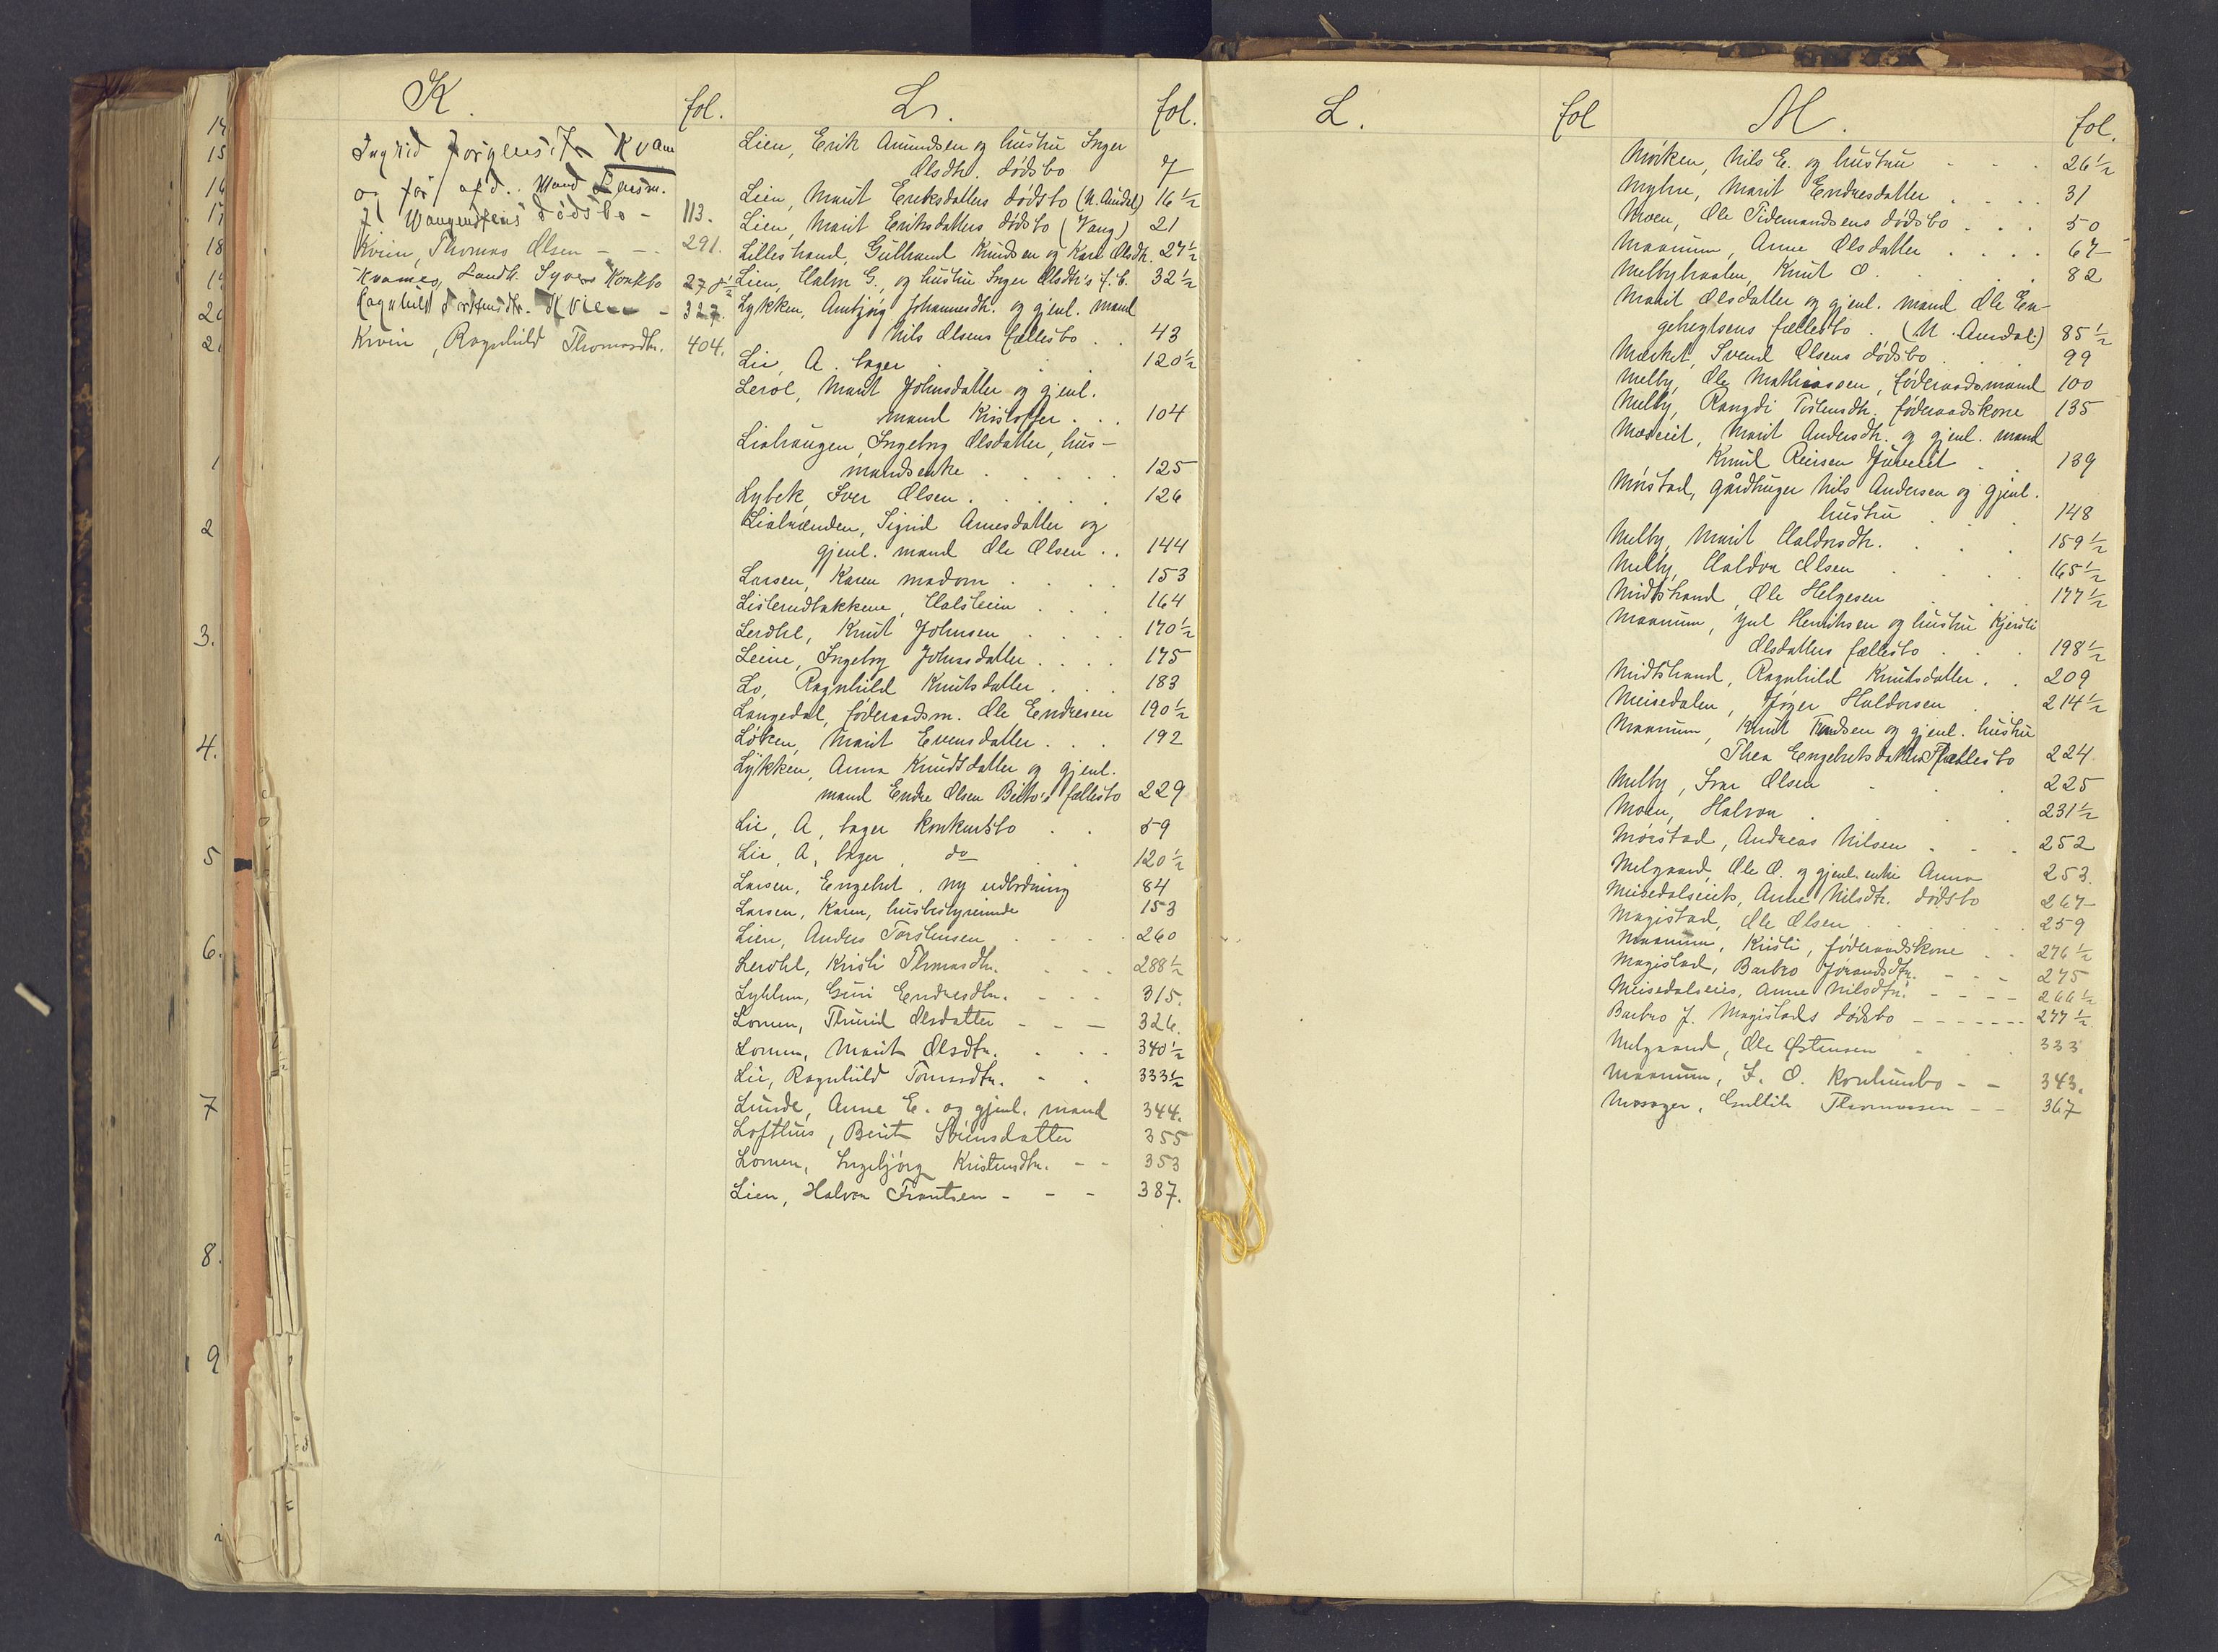 K.
fol.
Ingrid Kvam
og før afd. Mand
dødsbo - 113.
Kvien, Thomas Olsen - - 291.
Kvames, Landh. Konkbo 278½
Kvien - 327.
Kvien, Ragnhild Thomasdtr. 404.
L.
fol.
Lien, Erik Amundsen og hustru Inger
Olsdtr. dødsbo 7
Lien, Marit Eriksdatters dødsbo (N. Aurdal) 16½
Lien, Marit Eriksdatters dødsbo (Vang) 21
Lillestrand, Gulbrand Knudsen og Kari Olsdtr. 27½
Lien, Halvor G., og hustru Inger Olsdtr's f.b. 32½
Lykken, Ambjørg Johannesdtr. og gjenl. mand
Nils Olsens fællesbo . . 43
Lie, A. bager . . . 120½
Lerol, Marit Johnsdatter og gjenl.
mand Kristoffer . . . 104
Liahaugen, Ingebor Olsdatter, hus-
mandsenke . . . . 125
Lybek, Iver Olsen . . . . 126
Liabrænden, Sigrid Arnesdatter og
gjenl. mand Ole Olsen . . 144
Larsen, Karen madam . . . . 153
Listerudbakkene, Halstein . . . 164
Lerohl, Knut Johnsen . . . . 170½
Leine, Ingeborg Johnsdatter . . . . 175
Lo, Ragnhild Knutsdatter . . . 183
Langedal, føderaadsm. Ole Endresen 190½
Løken, Marit Evensdatter . . . 192
Lykken, Anna Knudsdatter og gjenl.
mand Endre Olsen Beito's fællesbo 229
Lie, A, bager konkursbo . . 59
Lie, A, bager, do . . 120½
Larsen, Engebret, ny udlodning 84
Larsen, Karen, husbestyrerinde 153
Lien, Anders Torstensen . . . . 260
Lerohl, Kristi Thomasdtr. . . . 288½
Lykken, Guri Endresdtr. - - - 315.
Lomen, Thurid Olsdatter - - - 326.
Lomen, Marit Olsdtr. . . . 340½
Lie, Ragnhild Tomasdtr. - . 333½
Lunde, Anne E. og gjenl. mand 344.
Lofthus, Berit Steinsdatter 355
Lomen, Ingebjørg Kristensdtr. - - 353
Lien, Halvor Frantsen - - - 387.
L.
fol
M.
fol.
Møiken, Nils E. og hustru - . . 26½
Myhre, Marit Endresdatter . . . . 31
Moen, Ole Tidemandsens dødsbo . . . 50
Maanum, Anne Olsdatter . . . . 67
Melbybraaten, Knut O. . . . . 82
Marit Olsdatter og gjenl. mand Ole En-
gebrgtsens fællesbo . (N. Aurdal) 85½
Mørket, Svend Olsens dødsbo . . 99
Melby, Ole Mathiassen, føderaadsmand 100
Melby, Rangdi Torstensdtr. føderaadskone 135
Marit Andersdtr. og gjenl. mand
Knud Reiersen . . 139
Mørstad, gårdbruger Nils Andersen og gjenl.
hustru . . . 148
Melby, Marit Haldorsdtr. . . . 159½
Melby, Haldor Olsen . . . 165½
Midtstrand, Ole Helgesen . . . 177½
Maanum, Juul Henriksen og hustru Kjersti
Olsdatters fællesbo . . . 198½
Midtstrand, Ragnhild Knutsdatter . . 209
Meisedalen, Haldorsen . . 214½
Maanum, Knut og gjenl. hustru
Thea Engebretsdatters fællesbo 224
Melby, Ivar Olsen . . . 225
Moen, Halvor . . . 231½
Mørstad, Andreas Nilsen . . . 252
Melgaard, Ole O. og gjenl. enke Anna 253.
Meisedalseiets, Anne Nilsdtr. dødsbo 267
Magistad, Ole Olsen . . . 259
Maanum, Kristi, føderaadskone . . 276½
Magistad, Barbro - - - 275
Meisedalseies, Anne Nilsdtr. - - - - 266½
Barbro J. Magistads dødsbo - - - - - - - 277½
Melgaard, Ole Østensen - . . 333
Maanum, I. O. - - 343.
Mosager, Gullik Thomassen - - 367
14
15
16
17
18
19
20
21
1
2
3.
4.
5
6.
7
8.
9